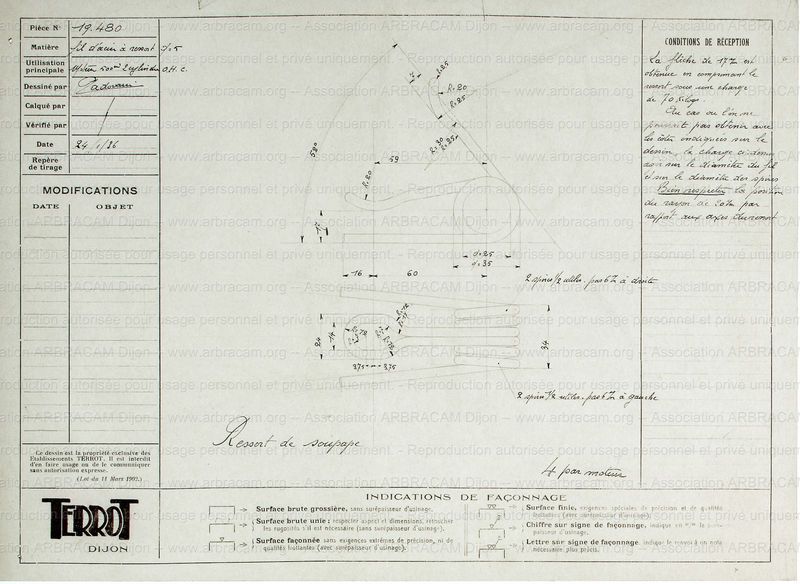 Pièce N° 19.480
Matière fil d'acier à ressort d=5
Utilisation principale Moteur 500cm3 2 cylindres O.H.C.
Dessiné par
Calqué par
Vérifié par
Date 24/1/36
Repère de tirage
MODIFICATIONS
DATE OBJET
Ce dessin est la propriété exclusive des
Etablissements TERROT. Il est interdit
d'en faire usage ou de le communiquer
sans autorisation expresse.
(Loi du 11 Mars 1902.)
TERROT
DIJON
CONDITIONS DE RÉCEPTION
La flèche de 17 % est
obtenue en comprimant le
ressort sous une charge
de 70 kilogs.
Au cas où l'on ne
pourrait pas obtenir avec
les côtes indiquées sur le
dessin, la charge ci-dessus
agir sur le diamètre du fil
et sur le diamètre des spires
Bien respecter la position
du rayon de 20 % par
rapport aux axes du ressort
R.25
R.20
R.25
R.30
R.25
58°
59
R.20
17
d=25
d=35
16
60
2 spires 1/2 utiles. pas 6 % à droite
24
14
R.78
R.78
34
375
375
2 spires 1/2 utiles. pas 6 % à gauche
Ressort de soupape
4 par moteur
INDICATIONS DE FAÇONNAGE
Surface brute grossière, sans surépaisseur d'usinage.
Surface brute unie : respecter aspect et dimensions, retoucher
les rugosités s'il est nécessaire (sans surépaisseur d'usinage).
Surface façonnée sans exigences extrêmes de précision, ni de
qualités frottantes (avec surépaisseur d'usinage).
Surface finie, exigences spéciales de précision et de qualités
frottantes (avec surépaisseur d'usinage).
Chiffre sur signe de façonnage, indique en m/m la surépaisseur d'usinage.
Lettre sur signe de façonnage, indique le renvoi à un nota
nécessaire plus précis.
www.arbracam.org – Association ARBRACAM Dijon
Reproduction autorisée pour usage personnel et privé uniquement.